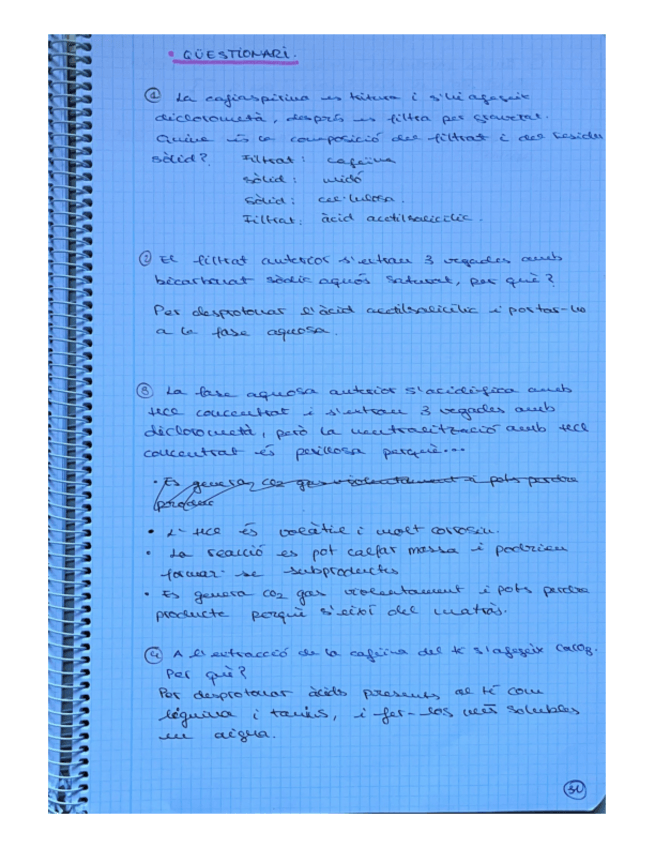 • QÜESTIONARI.
① La cafiaspirina es tritura i s'hi afegeix
diclorometà, després es filtra per gravetat.
Quina és la composició del filtrat i del residu
sòlid? Filtrat: cafeïna
sòlid: midó
sòlid: cel·lulosa.
Filtrat: àcid acetilsalicílic.
② El filtrat anterior s'extrau 3 vegades amb
bicarbonat sòdic aquós saturat, per què?
Per desprotonar l'àcid acetilsalicílic i portar-lo
a la fase aquosa.
③ La fase aquosa anterior s'acidifica amb
HCl concentrat i s'extrau 3 vegades amb
diclorometà, però la neutralització amb HCl
concentrat és perillosa perquè...
• Es genera CO2 gas violentament i pots perdre
producte
• L'HCl és volàtil i molt corrosiu.
• La reacció es pot calfar massa i podrien
formar-se subproductes
• Es genera CO2 gas violentament i pots perdre
producte perquè s'eixi del matràs.
④ A l'extracció de la cafeïna del te s'afegeix CaCO3.
Per què?
Per desprotonar àcids presents al té com
lignina i tanins, i fer-los més solubles
en aigua.
30